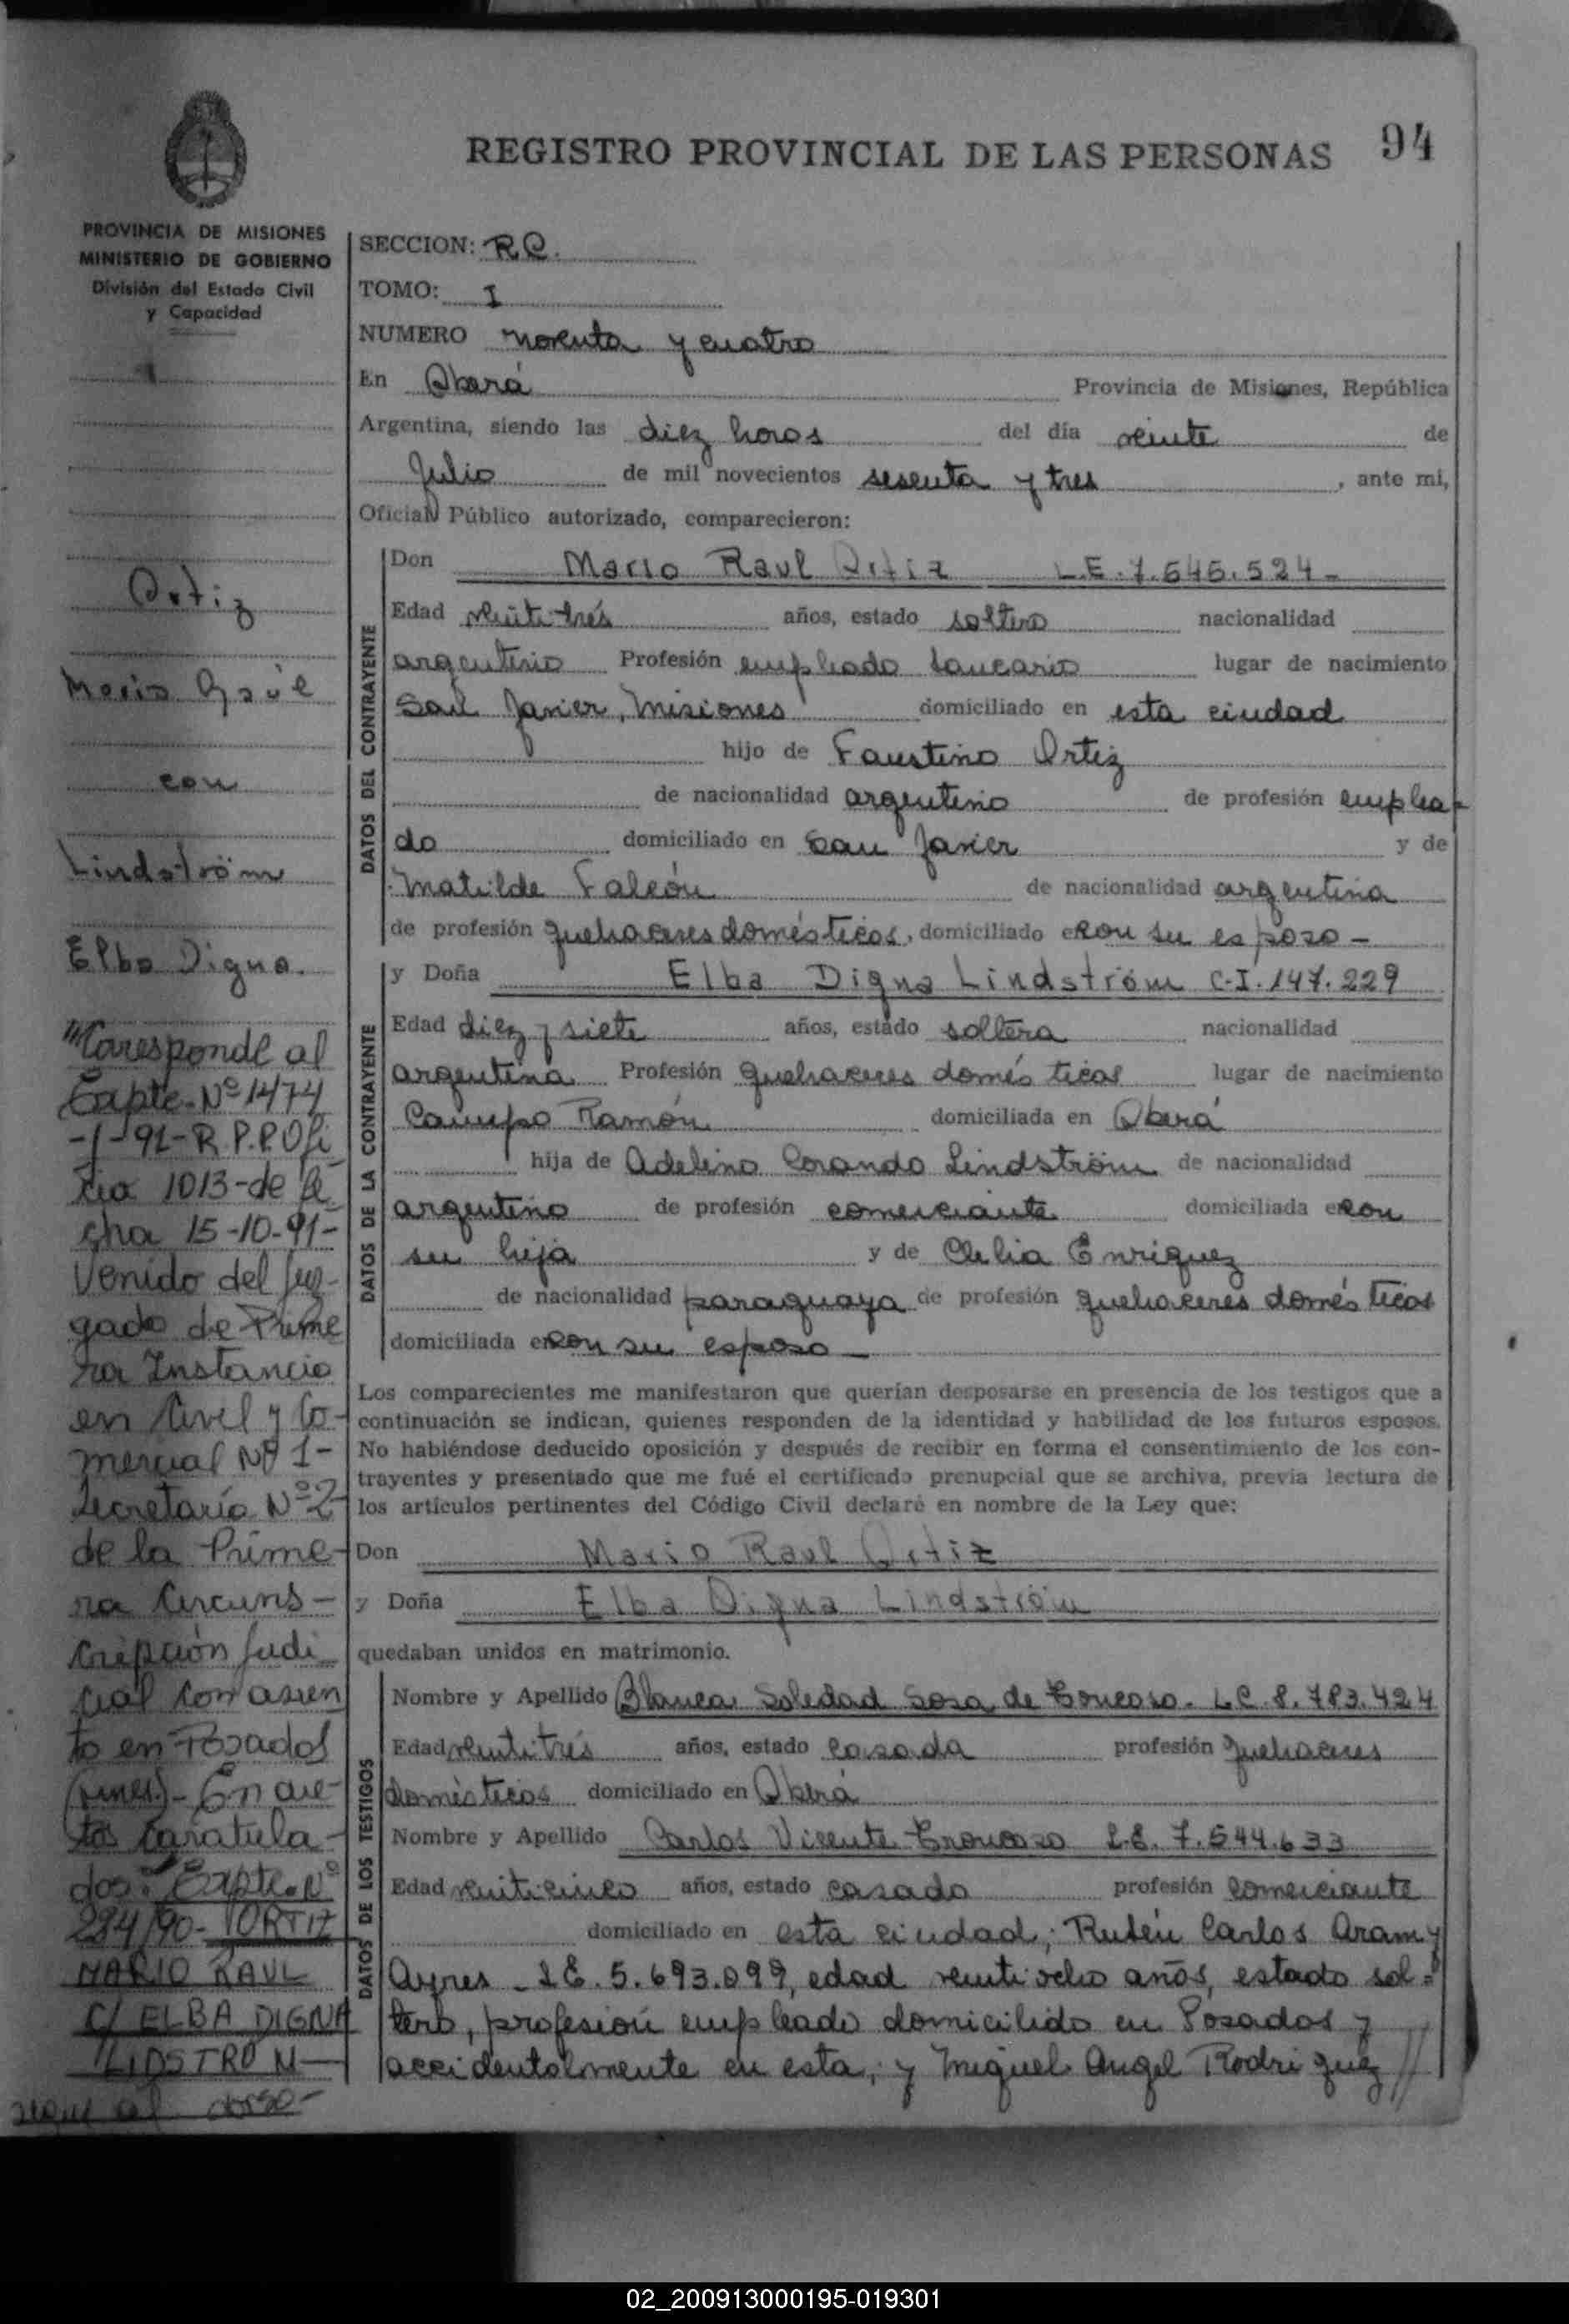 REGISTRO PROVINCIAL DE LAS PERSONAS 94
PROVINCIA DE MISIONES
MINISTERIO DE GOBIERNO
División del Estado Civil
y Capacidad
Ortiz
Mario Raúl
con
Lindström
Elba Digna.
Corresponde al
Expte. Nº 1474
-1-91-R.P.P. Ofi
cio 1013-de fe
cha 15-10-91-
Venido del Juz-
gado de Prime
ra Instancia
en Civil y Co-
mercial Nº 1-
Secretaría Nº 2
de la Prime-
ra Circuns-
cripción Judi
cial con asien
to en Posadas
(Mnes)- En au-
tos caratula-
dos: Expte. Nº
284/90- ORTIZ
MARIO RAUL
C/ ELBA DIGNA
LIDSTROM-
sigue al dorso-
SECCION: R.C.
TOMO: I
NUMERO noventa y cuatro
En Oberá Provincia de Misiones, República
Argentina, siendo las diez horas del día veinte de
Julio de mil novecientos sesenta y tres, ante mi,
Oficial Público autorizado, comparecieron:
DATOS DEL CONTRAYENTE
Don Mario Raul Ortiz L.E. 7.545.524-
Edad veintitrés años, estado soltero nacionalidad
argentino Profesión empleado bancario lugar de nacimiento
San Javier, Misiones domiciliado en esta ciudad
hijo de Faustino Ortiz
de nacionalidad argentino de profesión emplea-
do domiciliado en San Javier y de
Matilde Falcón de nacionalidad argentina
de profesión quehaceres domésticos, domiciliado con su esposo-
DATOS DE LA CONTRAYENTE
y Doña Elba Digna Lindström C.I. 147.229
Edad diez y siete años, estado soltera nacionalidad
argentina Profesión quehaceres domésticos lugar de nacimiento
Campo Ramón domiciliada en Oberá
hija de Adelino Lindström de nacionalidad
argentino de profesión comerciante domiciliada con
su hija y de Clelia Enriquez
de nacionalidad paraguaya de profesión quehaceres domésticos
domiciliada con su esposo-
Los comparecientes me manifestaron que querían desposarse en presencia de los testigos que a
continuación se indican, quienes responden de la identidad y habilidad de los futuros esposos.
No habiéndose deducido oposición y después de recibir en forma el consentimiento de los con-
trayentes y presentado que me fué el certificado prenupcial que se archiva, previa lectura de
los artículos pertinentes del Código Civil declaré en nombre de la Ley que:
Don Mario Raul Ortiz
y Doña Elba Digna Lindström
quedaban unidos en matrimonio.
DATOS DE LOS TESTIGOS
Nombre y Apellido Blanca Soledad Sosa de L.C. 8.783.424
Edad veintitrés años, estado casada profesión quehaceres
domésticos domiciliado en Oberá
Nombre y Apellido Carlos Vicente L.E. 7.544.633
Edad veinticinco años, estado casado profesión comerciante
domiciliado en esta ciudad; Rubén Carlos Aramy
Ayres - L.E. 5.693.099, edad veintiocho años, estado sol=
tero, profesión empleado domiciliado en Posadas y
accidentalmente en esta; y Miguel Angel Rodriguez //
02_200913000195-019301